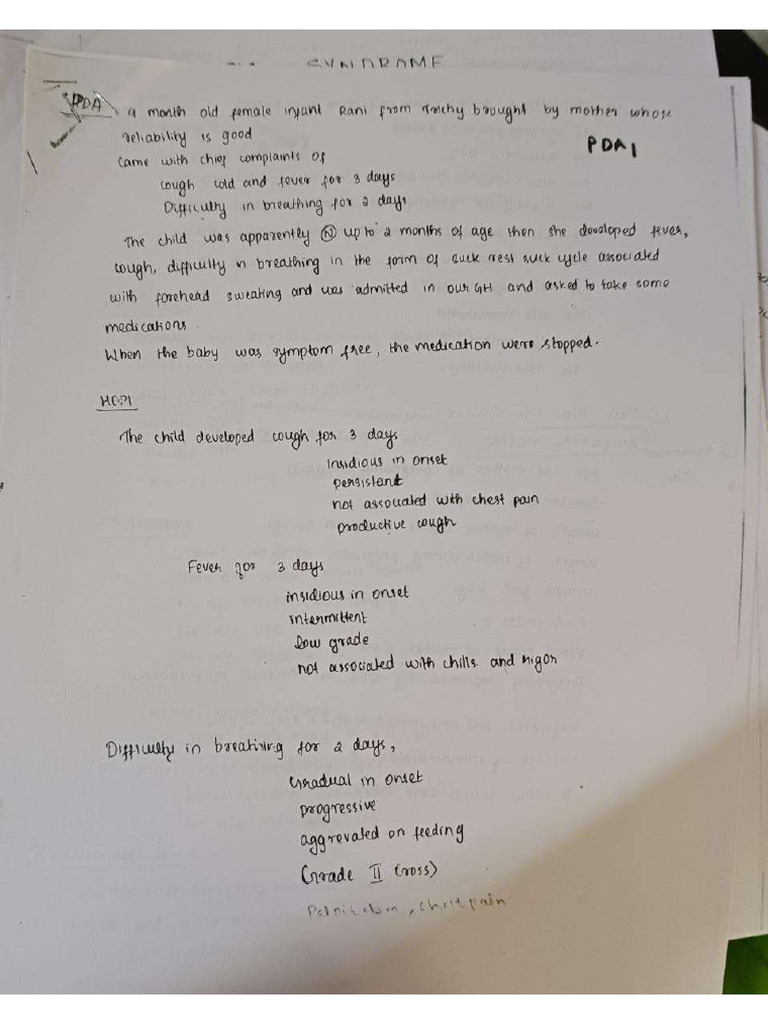 SYNDROME
PDA 4 month old female infant Rani from Trichy brought by mother whose
reliability is good
PDA1
Came with chief complaints of
cough cold and fever for 3 days
Difficulty in breathing for 2 days
The child was apparently Ⓝ up to 2 months of age then she developed fever,
cough, difficulty in breathing in the form of suck rest suck cycle associated
with forehead sweating and was admitted in our GH and asked to take some
medications.
When the baby was symptom free, the medication were stopped.
HOPI
The child developed cough for 3 days
Insidious in onset
persistant
not associated with chest pain
productive cough
Fever for 3 days
insidious in onset
intermittent
low grade
not associated with chills and rigor
Difficulty in breathing for 2 days,
Gradual in onset
progressive
aggrevated on feeding
Grade II (ross)
Palpitation, Chest pain